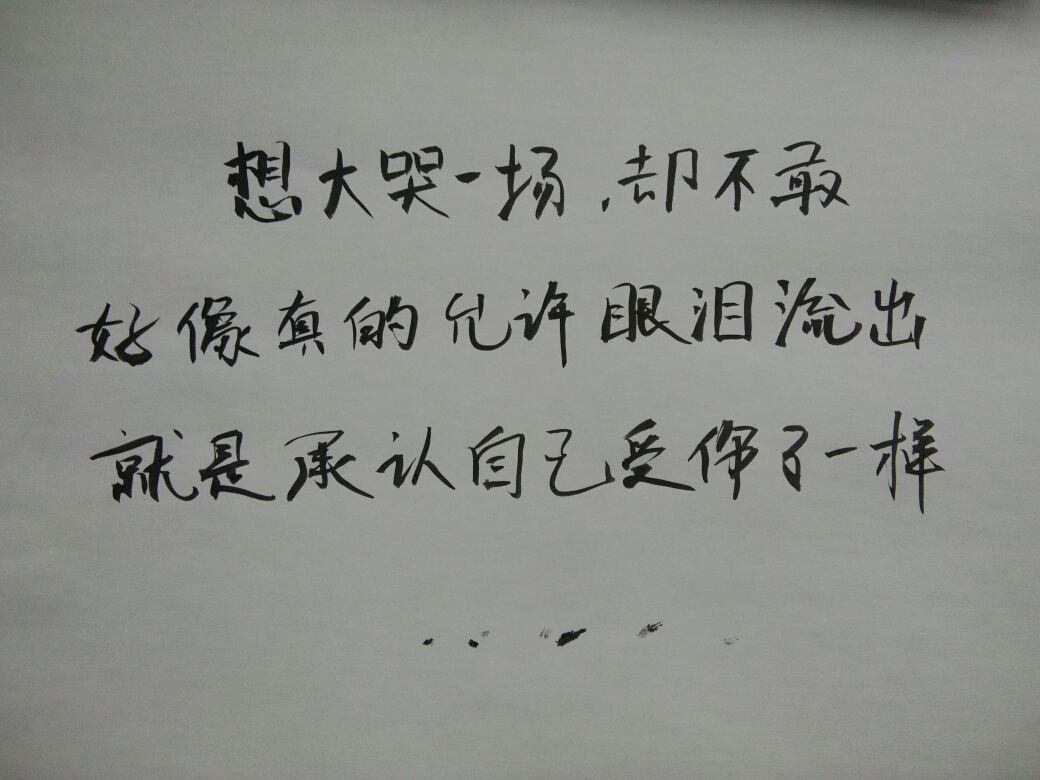 想大哭一场,却不敢
好像真的允许眼泪流出
就是承认自己受伤了一样
.....